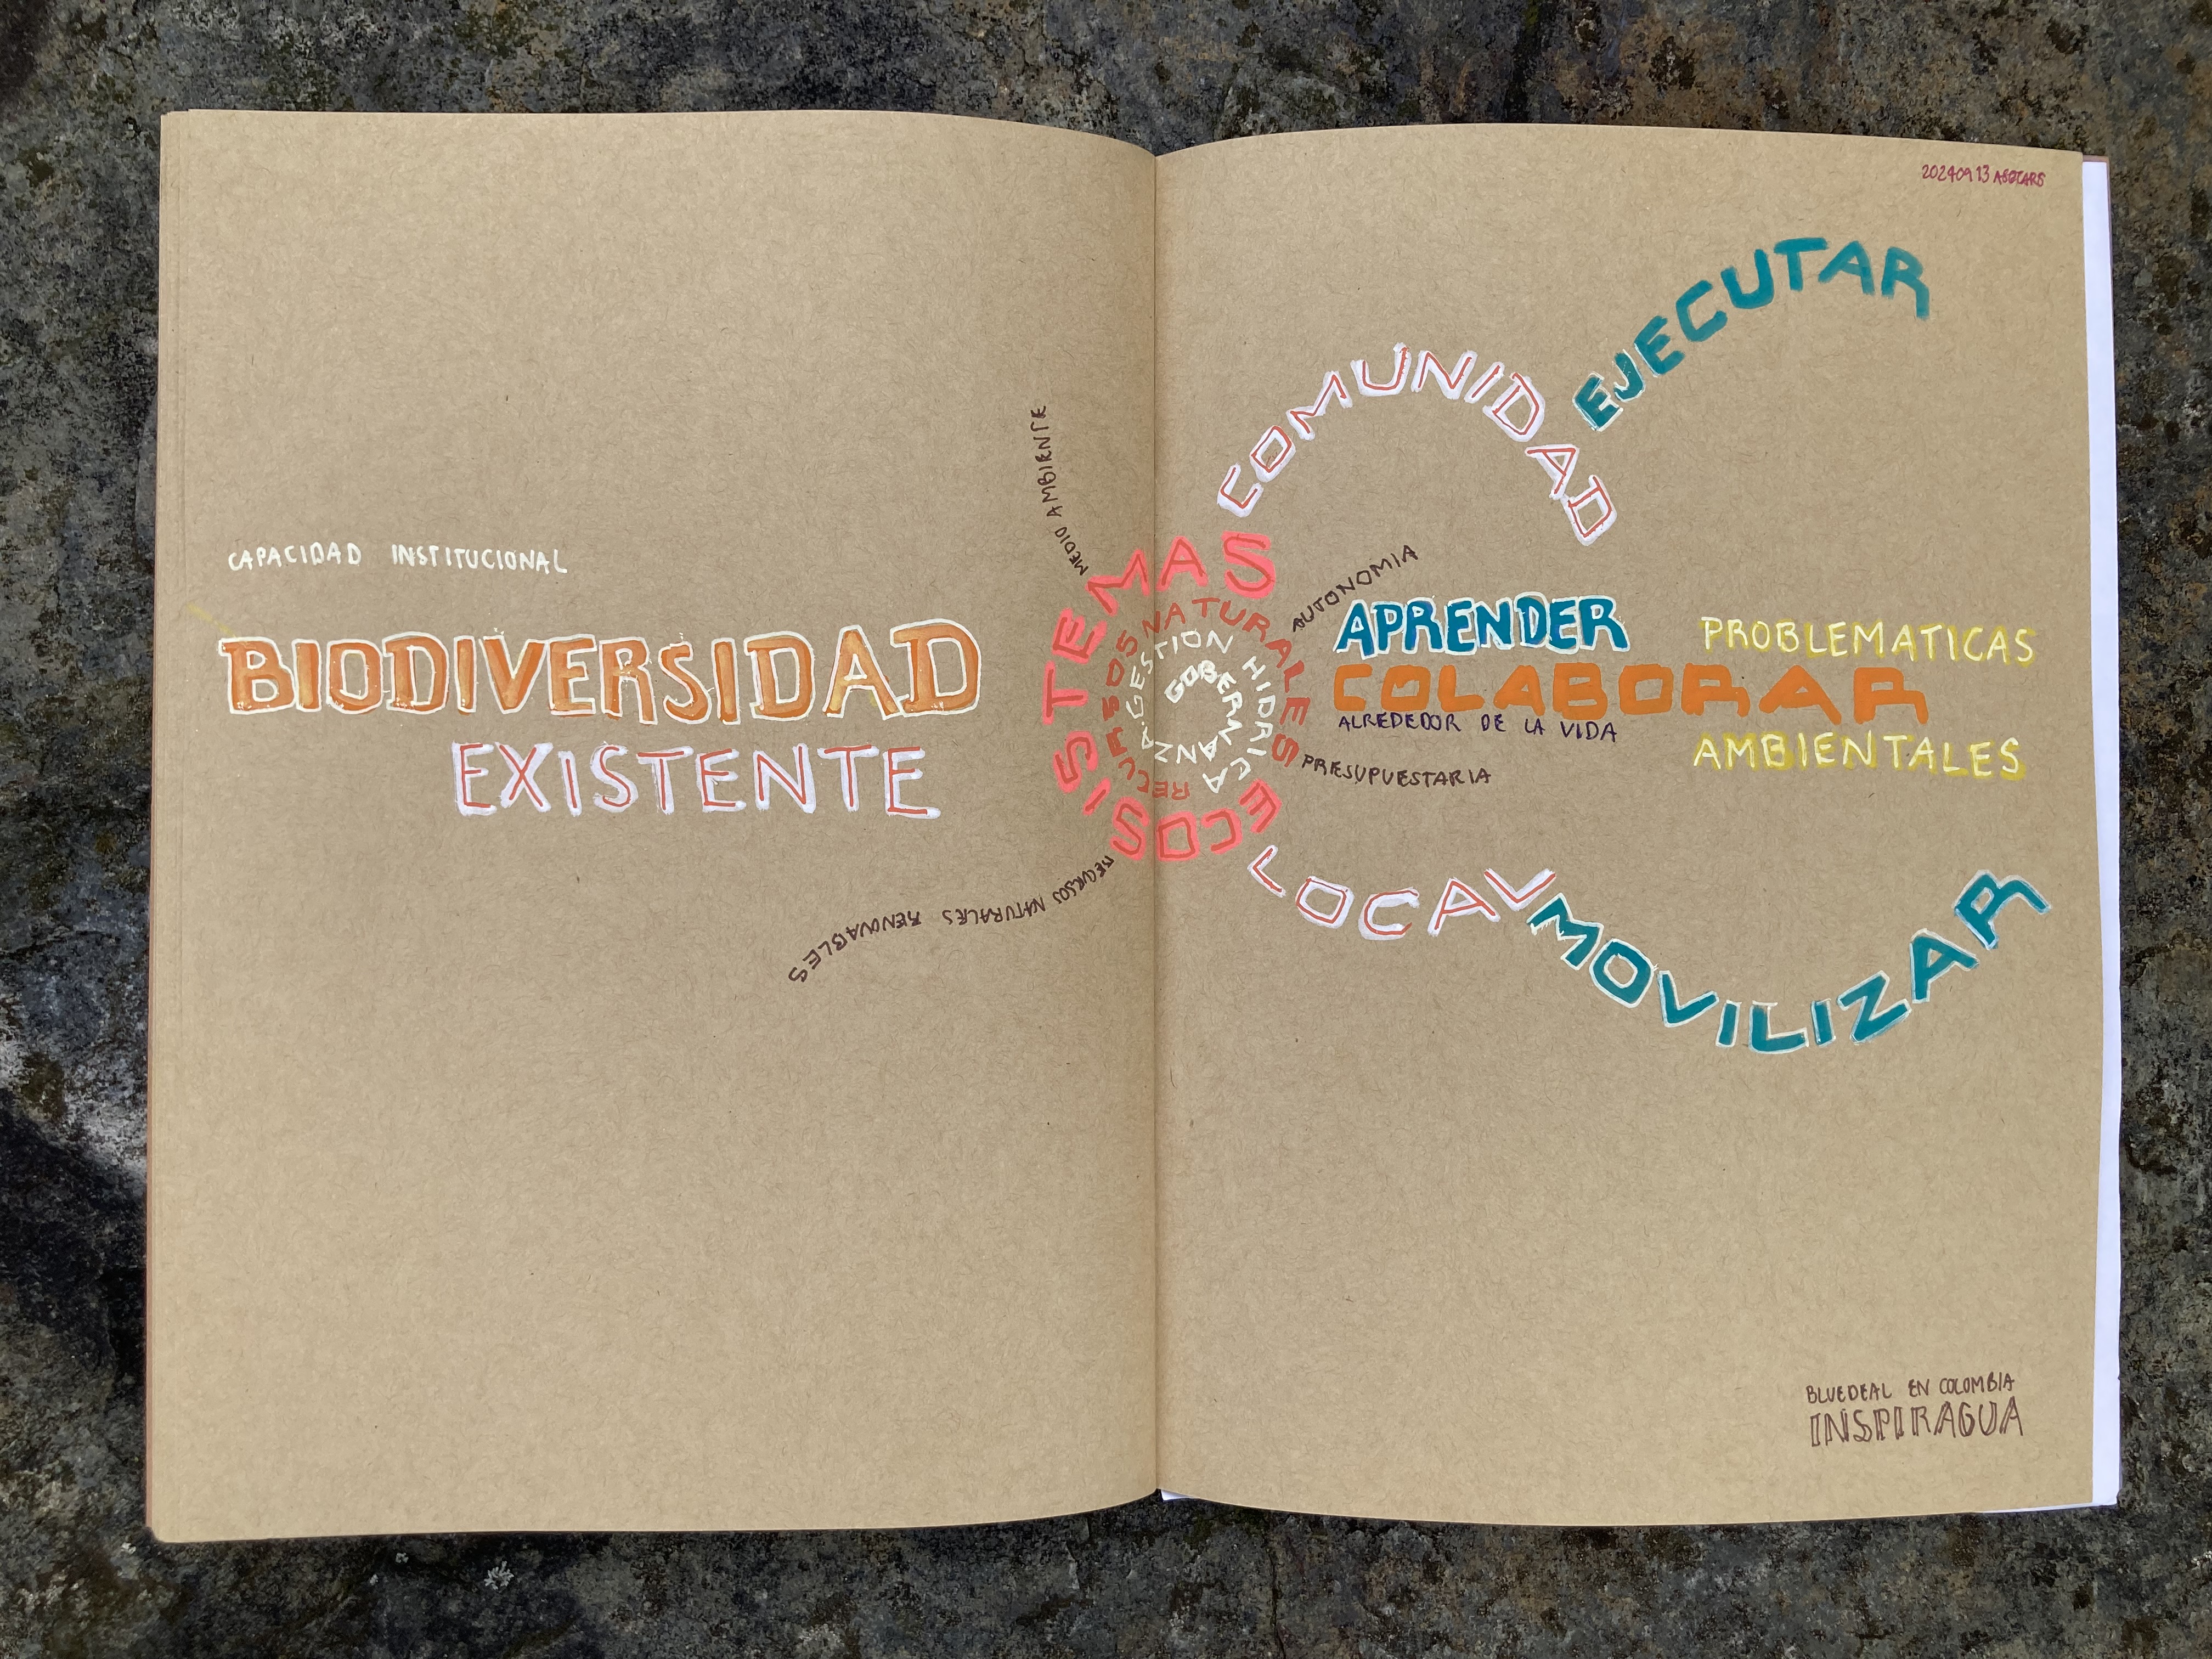 20240913 ASOCARS
CAPACIDAD INSTITUCIONAL
BIODIVERSIDAD
EXISTENTE
MEDIO AMBIENTE
RECURSOS NATURALES RENOVABLES
ECOSISTEMAS
RECURSOS NATURALES
GESTION HIDRICA
GOBERNANZA.
AUTONOMIA
PRESUPUESTARIA
COMUNIDAD
LOCAL
EJECUTAR
APRENDER
COLABORAR
ALREDEDOR DE LA VIDA
PROBLEMATICAS
AMBIENTALES
MOVILIZAR
BLUEDEAL EN COLOMBIA
INSPIRAGUA